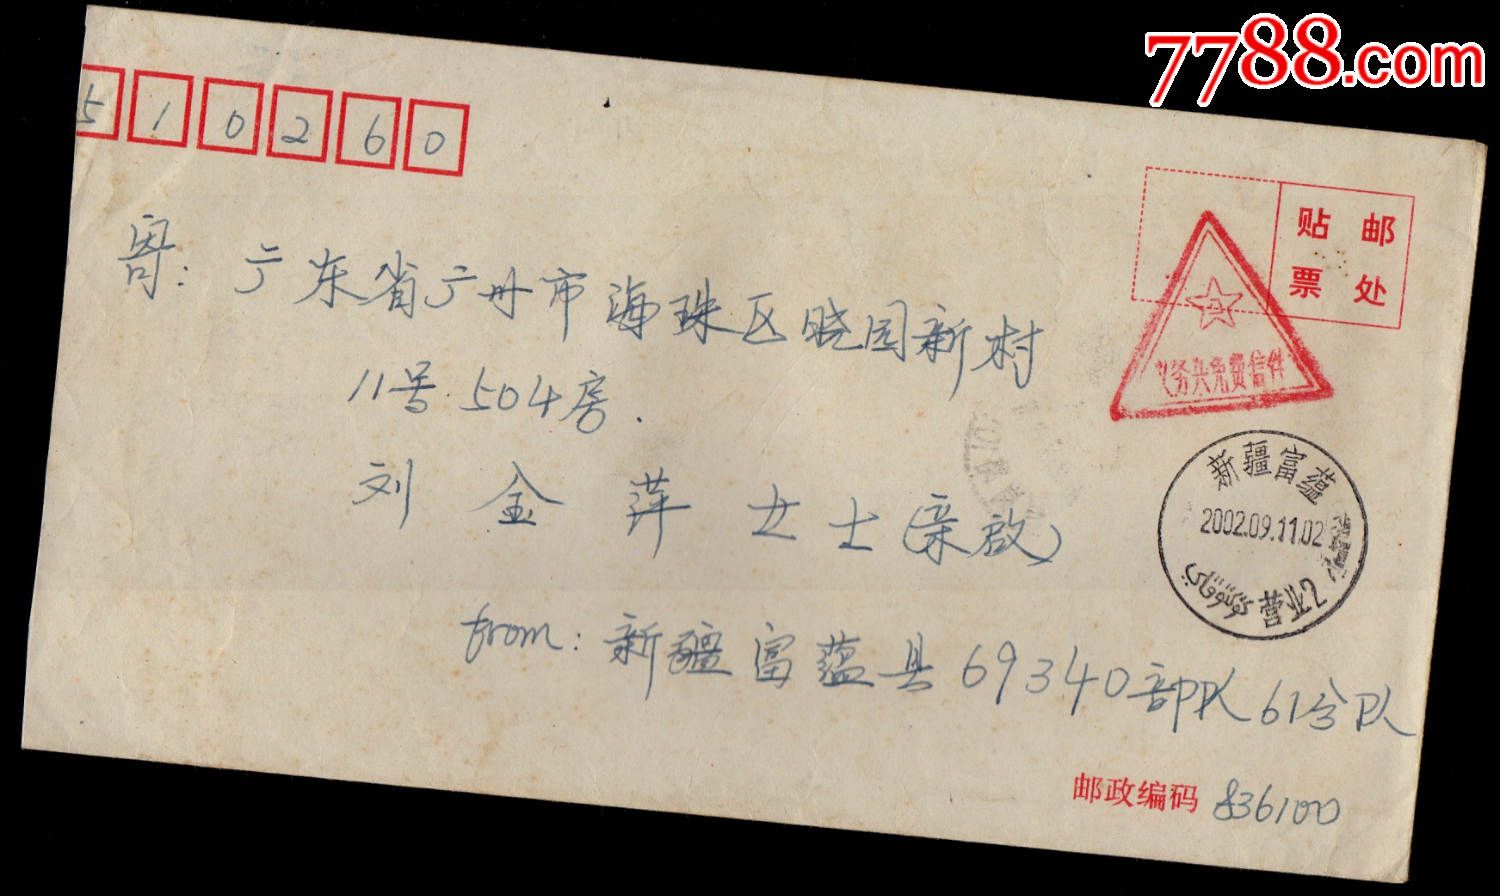 7788.com
510260
贴 邮
票 处
寄: 广东省广州市海珠区晓园新村
11号.504房.
义务兵免费信件
刘金萍女士(亲啟)
新疆富蕴
2002.09.11.02
营业2
from: 新疆富蕴县69340部队61分队
邮政编码 836100